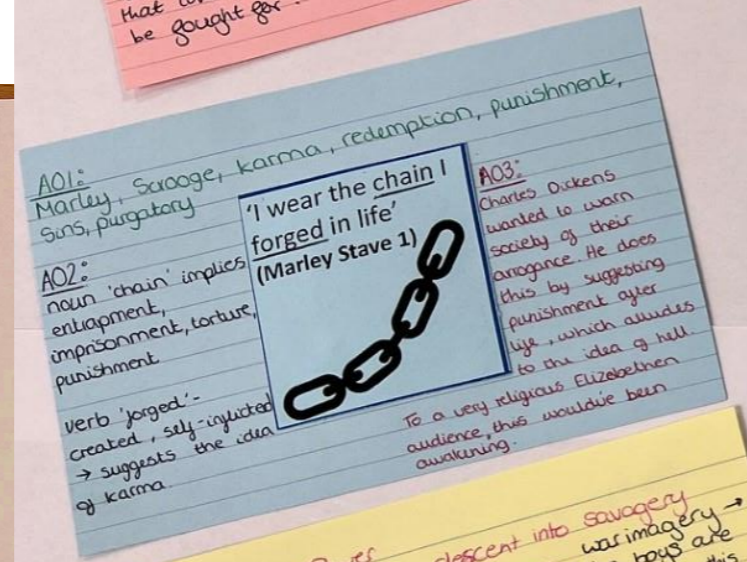 that
be fought for.
AO1:
Marley, Scrooge, karma, redemption, punishment,
sins, purgatory
AO2:
noun 'chain' implies
entrapment,
imprisonment, torture,
punishment
verb 'forged'-
created, self-inflicted
→ suggests the idea
of karma.
'I wear the chain I
forged in life'
(Marley Stave 1)
AO3:
Charles Dickens
wanted to warn
society of their
arrogance. He does
this by suggesting
punishment after
life, which alludes
to the idea of hell.
To a very religious Elizabethen
audience, this would've been
awakening.
descent into savagery
war imagery →
boys are
this